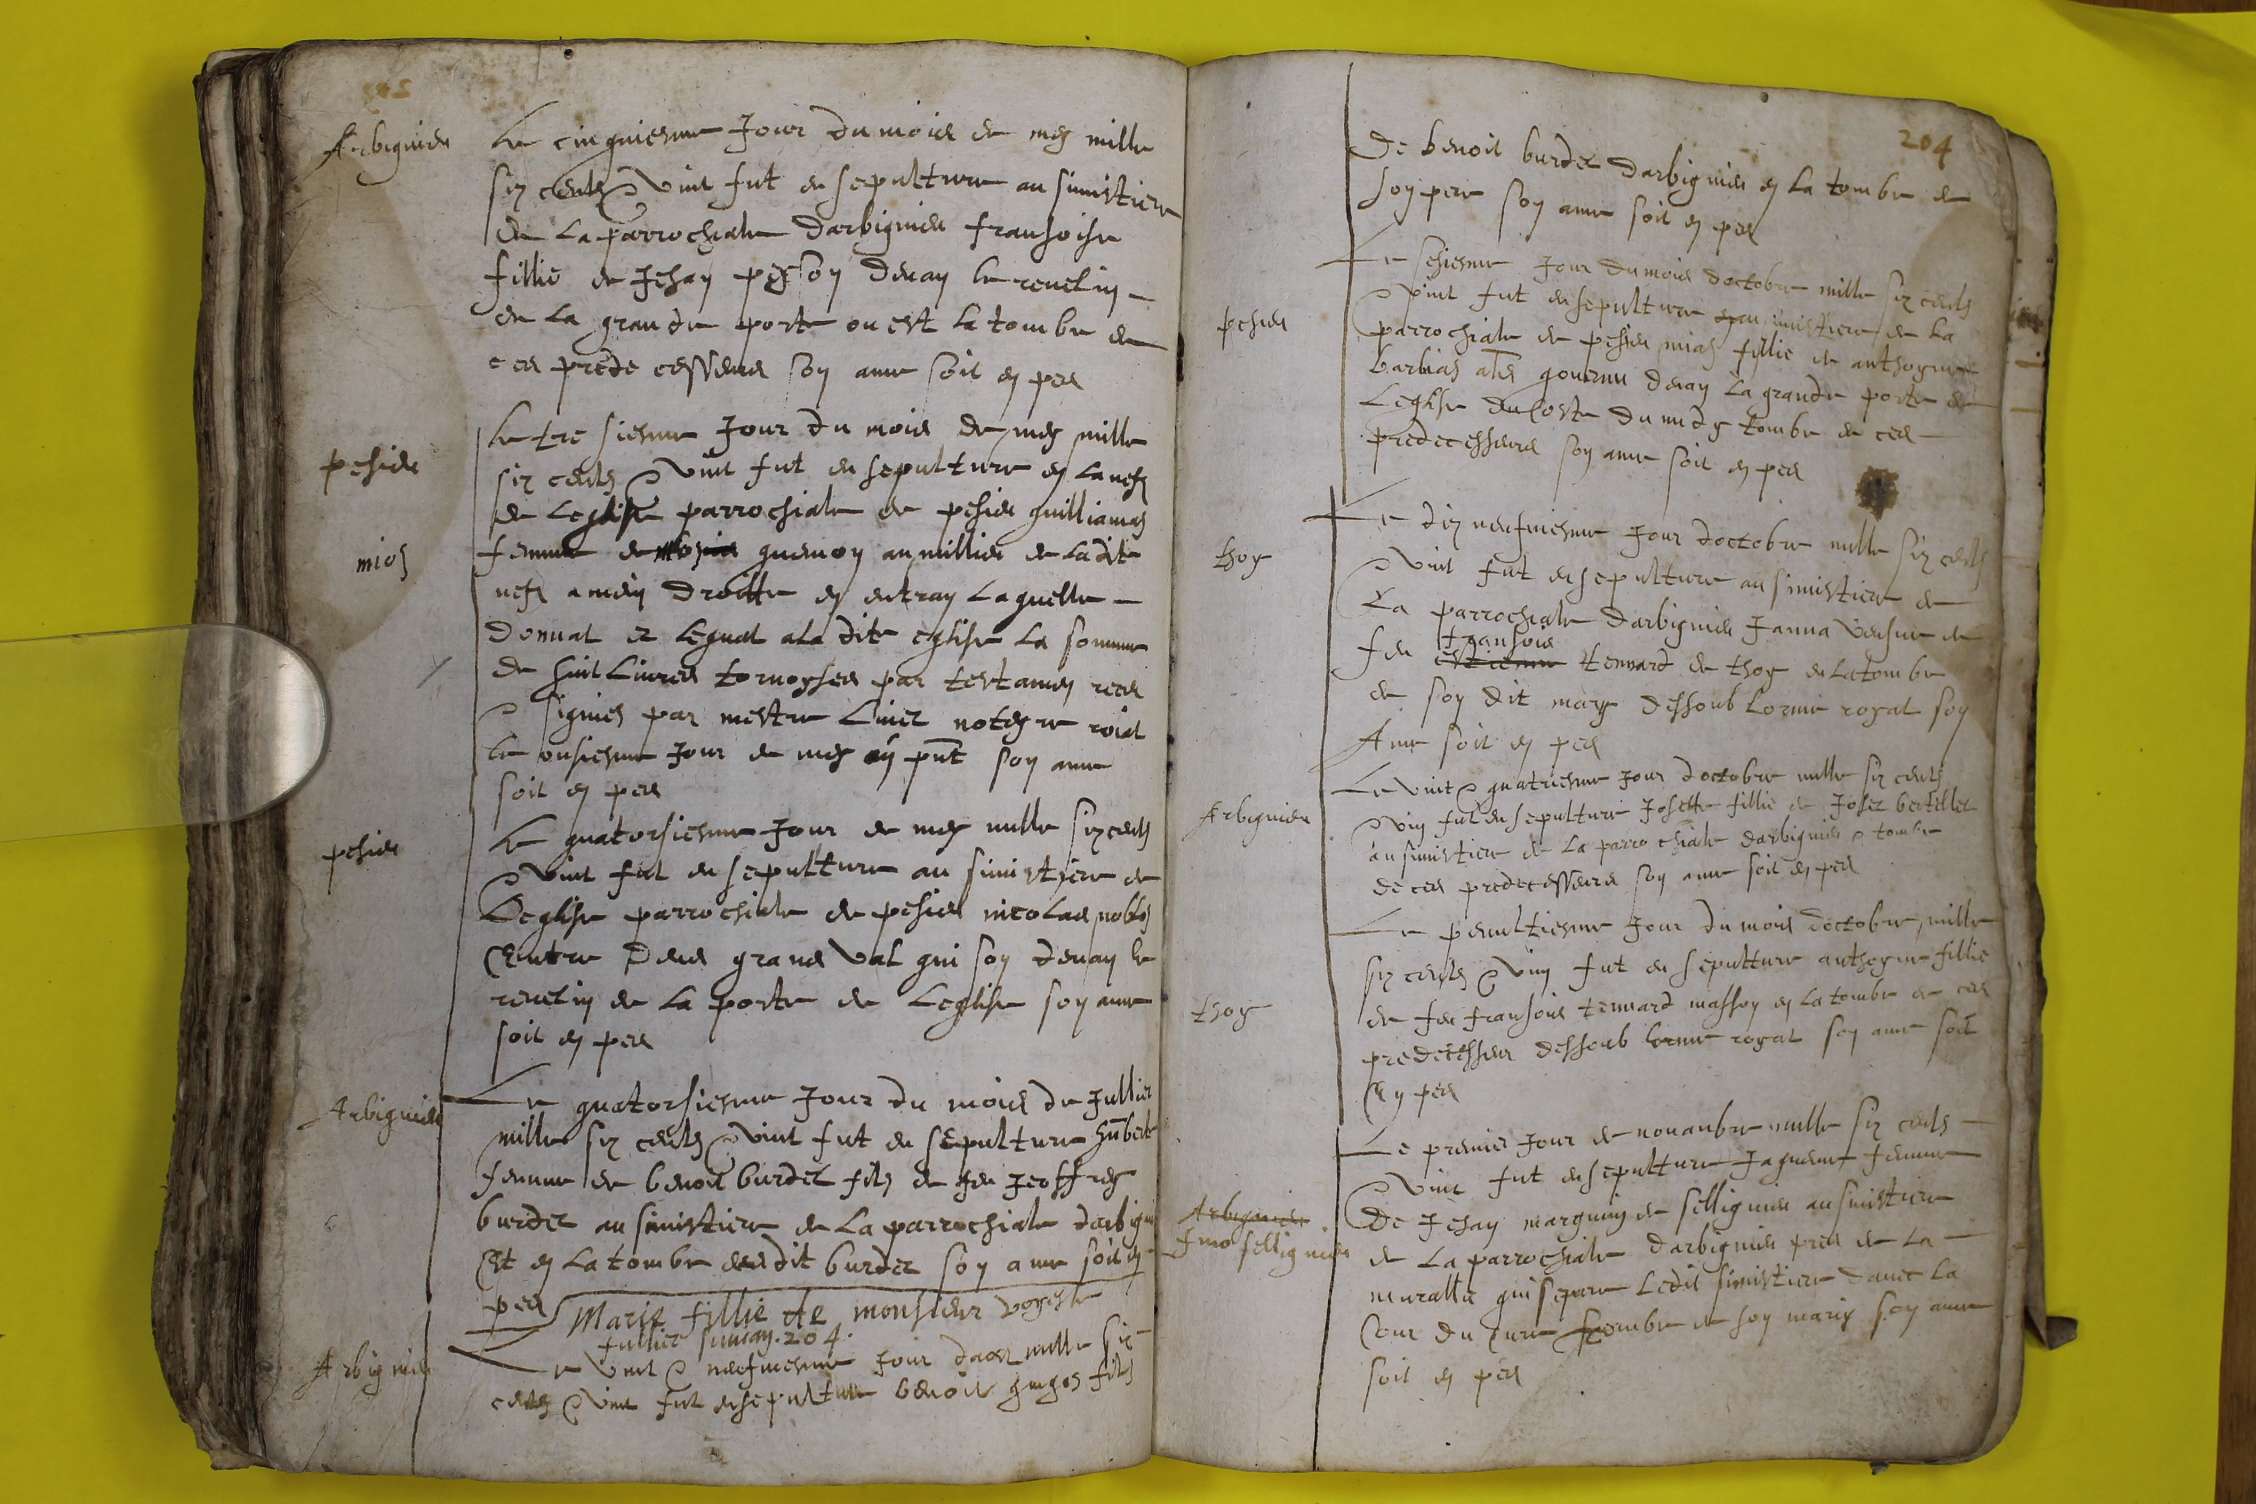 Arbignieu
Le cinquiesme Jour du mois de mey mille
six centz & vint fut ensepulture au simistiere
de La parrochiale darbignieu fransoise
fillie de Jehan person devan le revelin
de La grande porte ou est La tombe de
ces predecesseurs son ame soit en pes
pesieu
Le tresiesme Jour du mois de mey mille
six centz & vint fut ensepulture en La nefz
de Leglise parrochiale de pesieu guilliamaz
mioz
femme de guenon au millieu de La dite
nefz a mein droitte en entran Laquelle
donnat et leguat a La dite eglise La somme
de huit Livres tornoyses par testamen
& signies par mestre Livet noteyre roial
Le onsiesme Jour de mey an pnt son ame
soit en pes
pesieu
Le quatorsiesme Jour de mey mille six centz
& vint fut ensepulture au simistiere de
Leglise parrochiale de pesieu nicolas
Entre deus grans val qui son devan le
revelin de La porte de Leglise son ame
soit en pes
Arbignieu
Le quatorsiesme Jour du mois de Jullier
mille six centz & vint fut ensepulture humberte
femme de benoit burdet filz de feu Jeoffrey
burdet au simistiere de La parrochiale darbignieu
Et en La tombe dudit burdet son ame soit en
pes Marie fillie de monsieur
fullier 204.
Arbignieu
Le vint & neufviesme Jour daost mille six
centz & vint fut ensepulture benoit filz
204
De benoit burdet darbignieu en La tombe de
son pere son ame soit en pes
pesieu
Le sesiesme Jour du mois doctobre mille six centz
& vint fut ensepulture au simistiere de La
parrochiale de pesieu miaz fillie de anthoyne
barbiaz als devan La grande porte de
Leglise du coste du midy tombe de ces
predecesseurs son ame soit en pes
thoy
Le dix neufviesme Jour doctobre mille six centz
& vint fut ensepulture au simistiere de
La parrochiale darbignieu Janna veufve de
fransois
feu estienne tennard de thoy en La tombe
de son dit mary dessoub Lorme royal son
Ame soit en pes
Arbignieu
Le vint & quatriesme Jour doctobre mille six centz
& vin fut ensepulture Josette fillie de Josez bertellet
au simistiere de La parrochiale darbignieu & tombe
de ces predecesseurs son ame soit en pes
thoy
Le penultiesme Jour du mois doctobre mille
six centz & vin fut ensepulture anthoyne fillie
de feu fransois tennard masson en La tombe de ces
predecesseur dessoub Lorme royal son ame soit
En pes
Arbignieu
Imo sellignieu
Le premier Jour de novanbre mille six centz
& vint fut ensepulture Jaqueme femme
De Jehan marguin de sellignieu au simistiere
de La parrochiale darbignieu pres de La
muralle qui separe Ledit simistiere davec La
Cour du Cure tombe de son mary son ame
soit en pes